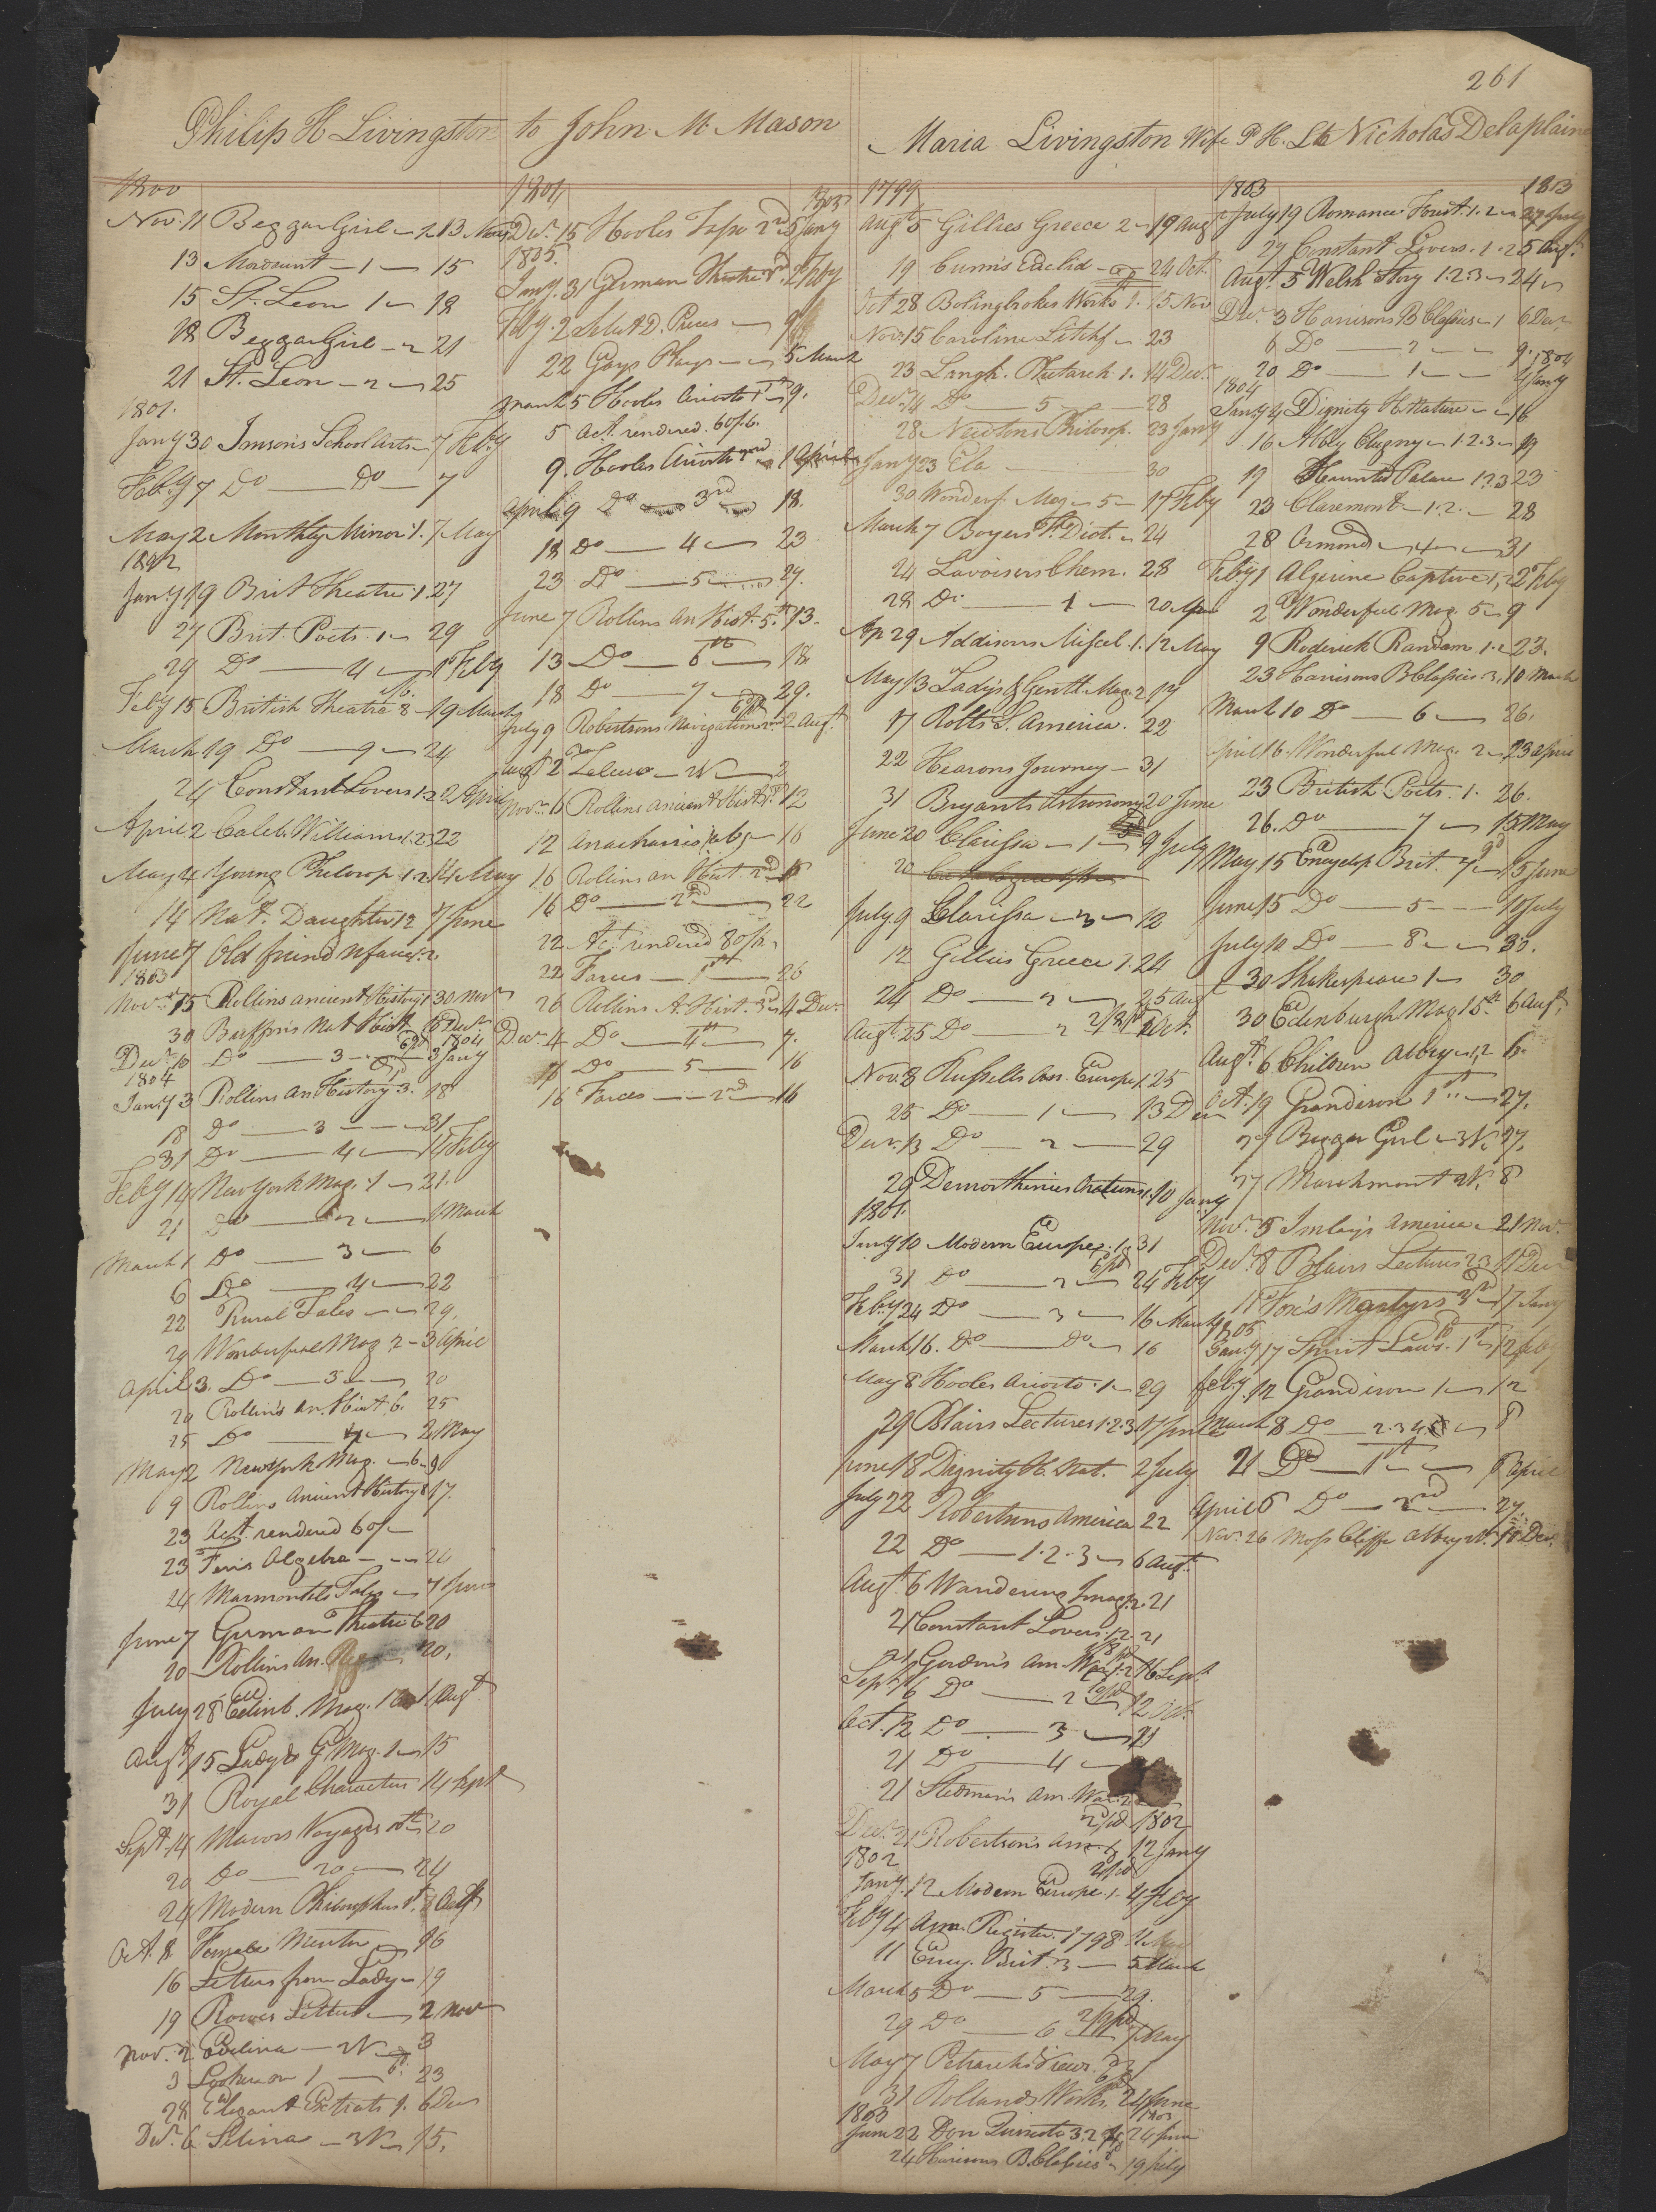 261
Philip H Livingston to John M Mason
Maria Livingston Wife P H. L to Nicholas Delaplaine
1800
Nov. 11 Beggar Girl 1.2 13 Nov
13 Mordaunt 1 15
15 St. Leon 1 18
18 Beggar Girl 2 21
21 St. Leon 2 25
1801.
Jany 30 Imison's School Arts 7 Feby
Feby 7 Do Do 7
May 2 Monthly Mirror 1. 7 May
1802
Jany 19 Brit Theatre 1 27
27 Brit. Poets. 1 29
29 Do 4 1 Feby
Feby 15 British Theatre 8 19 March
March 19 Do 9 24
24 Constant Lovers 1.2 2 April
April 2 Caleb Williams 1.2.3 22
May 4 Young Philosop 1.2. 14 May
14 Nat. Daughter 1 2 7 June
June 7 Old friend N face 1.2
1803
Novr 15 Rollins ancient History 1 30 Nov
30 Buffon's Nat Hist. 10 Decr
Decr 10 Do 3 3 Jany 1804
1804
Jany 3 Rollins An History 3. 18
18 Do 3 31
31 Do 4 14 Feby
Feby 14 New York Mag. 1 21.
21 Do 2 1 March
March 1 Do 3 6
6 Do 4 22
22 Rural Tales 29,
29 Wonderful Mag 2 3 April
April 3. Do 3 20
20 Rollin's An. Hist. 6. 25
25 Do 7 2 May
May 2 New York Mag. 6 9
9 Rollins Ancient History 8 17.
23 Act. rendered 60/
23 Fenn's Algebra 24
24 Marmontels Tales 7 June
June 7 German Theatre 6 20
20 Rollins An. 20,
July 28 Edinb. Mag. 16 1 Augt
Augt 15 Lady's G Mag. 1 15
31 Royal Characters 14 Sept
Sept. 14 Mavors Voyages 20
20 Do 20 24
24 Modern Philosophers 1st. 8 Oct
Oct. 8 Female Mentor 16
16 Letters from Lady 19
19 Rowes Letters 2 Nov
Nov. 2 Evelina 2N 3
3 Looker on 1 23
28 Elegant Extracts 1. 6 Dec
Decr. 6 Selina 3N 15.
1804
Decr. 15 Hooles Tasso 2nd 5 Jany 1805
1805.
Jany. 31 German Theatre 3rd. 2 Feby
Feby. 2 Select D. Pieces
22 Gays Plays 5 March
March 5 Hooles Ariosto 1st 9.
5 act. rendered. 60/6.
9. Hooles Ariosto 2nd 9 April
April 9 Do 3rd 18.
18 Do 4 23
23 Do 5 27.
June 7 Rollins An Hist. 5th 13.
13 Do 6th 18
18 Do 7 29.
July 9 Robertsons Navigation 2 Augt
Augt 2 Zeluco 2N 2
Novr. 6 Rollins Ancient Hist. 1st 12
12 Anacharsis (ab) 16
16 Rollins An Hist. 2nd 18
16 Do 2nd 22
22 Act rendered 80/
22 Farces 1st 26
26 Rollins A. Hist. 3rd 4 Dec.
Decr. 4 Do 4th 7.
7 Do 5 16
16 Farces 2nd 16
1799
Augt 5 Gillies Greece 2 19 Aug
19 Cunn's Euclid 24 Oct.
Oct 28 Bolingbrokes Works 1. 15 Nov
Nov. 15 Caroline Litchf 23
23 Langh. Plutarch 1. 14 Decr.
Decr. 14 Do 5 28
28 Newtons Philosop. 23 Jany
Jany 23 Ela 30
30 Wonderf. Mag 5 17 Feby
March 7 Boyers Fr. Dict. 24
24 Lavoisers Chem. 28
28 Do 1 20 Apr
Ap 29 Addisons Miscel. 1. 12 May
May 13 Lady's & Gentl. Mag. 2 17
17 Rolts S. America. 22
22 Hearons Journey 31
31 Bryants Astronomy 20 June
June 20 Clarissa 1 9 July
20 Catalogue
July. 9 Clarissa 3 12
12 Gillies Greece 1. 24
24 Do 2 25 Aug
Augt. 25 Do 2 2/3pd Oct.
Nov. 8 Russells An. Europe 1. 25
25 Do 1 13 Dec
Decr. 13 Do 2 29
29 Demosthenes Orations 1. 10 Jany
1801.
Jany 10 Modern Europe 1 31
31 Do 2 24 Feby
Feby 24 Do 3 16 March
March 16. Do Do 16
May 8 Hooles Ariosto 1 29
29 Blairs Lectures 1.2.3 17 June
June 18 Dignity H. Nat. 2 July
July 22 Robertsons America 22
22 Do 1.2.3 6 Augt.
Augt. 6 Wandering Imag. 2. 21
21 Constant Lovers 1.2 21
21 Gordon's Am. War. 1.2 16 Sept.
Sept. 16 Do 2 12 Oct.
Oct. 12 Do 3 21
21 Do 4
21 Stedman's Am. War. 2
Decr. 21 Robertson's Am 12 Jany 1802
1802
Jany. 12 Modern Europe. 1. 4 Feby
Feby 4 Ann. Register. 1798
11 Ency. Brit. 3 5 March
March 5 Do 5 29.
29 Do 6 7 May
May 7 Petrarchs Views
31 Rollands Works. 24 June
1803
June 22 Don Quixote 3.2 24 June 1803
24 Harrisons B. Classics 19 July
1803
July 19 Romance Forest. 1.2 27 July 1803
27 Constant Lovers. 1.2 5 Augt.
Augt. 5 Welsh Story 1.2.3 24
Decr. 3 Harrisons B Classics 1 6 Decr
6 Do 2 9.
20 Do 1 4 Jany 1804
1804
Jany 4 Dignity H. Nature 16
16 Abbey Clugny 1.2.3 19
19 Haunted Palace 1.2.3 23
23 Claremont 1.2. 28
28 Ormond 31
Feby 1 Algerine Captive 1,2 2 Feby
2 Wonderful Mag. 5 9
9 Roderick Random 1.2 23.
23 Harrisons B Classics 3, 10 March
March 10 Do 6 26.
April 16. Wonderful Mag. 2 23 April
23 British Poets. 1. 26.
26. Do 7 15 May
May 15 Encyclop Brit. 15 June
June 15 Do 5 10 July
July 10 Do 8 30.
30 Shakespeare 1 30
30 Edinburgh Mag 15th 6 Augt.
Augt. 6 Children Abbey 1,2 6.
Oct. 19 Grandison 1st 27.
27 Beggar Girl 3N. 27.
27 Marchmont 2N. 8
Nov. 8 Imlay's America 21 Nov.
Dec. 8 Blairs Lectures 2 3 11 Dec
11 Fox's Martyrs 3rd 17 Jany
1805
Jany 17 Spirit Laws. 1st 12 feby
feby. 12 Grandison 1 12
March 8 Do 2.3 4.5 8
21 Do 1st 6 April
April 6 Do 2nd 27.
Nov. 26 Moss Cliffe Abbey 10 Dec.